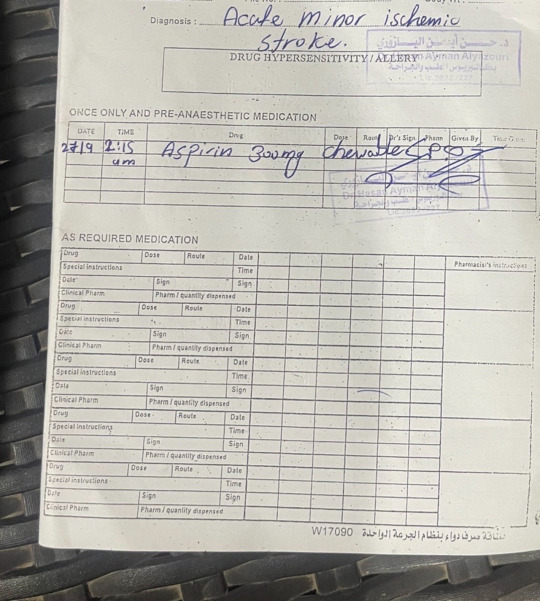 Diagnosis : Acute minor ischemic
stroke.
د. حسن أيمن اليازوري
Ayman Alyazouri
DRUG HYPERSENSITIVITY / ALLERY
ONCE ONLY AND PRE-ANAESTHETIC MEDICATION
DATE TIME Drug Dose Rout Dr's Sign Pharm Given By Time Given
27/9 2:15 am Aspirin 300mg chewable P.O
AS REQUIRED MEDICATION
Drug Dose Route Date Pharmacist's instructions
Special instructions Time
Date Sign Sign
Clinical Pharm Pharm / quantity dispensed
Drug Dose Route Date
Special instructions Time
Date Sign Sign
Clinical Pharm Pharm / quantity dispensed
Drug Dose Route Date
Special instructions Time
Date Sign Sign
Clinical Pharm Pharm / quantity dispensed
Drug Dose Route Date
Special instructions Time
Date Sign Sign
Clinical Pharm Pharm / quantity dispensed
Drug Dose Route Date
Special instructions Time
Date Sign Sign
Clinical Pharm Pharm / quantity dispensed
W17090 بطاقة صرف دواء بنظام الجرعة الواحدة